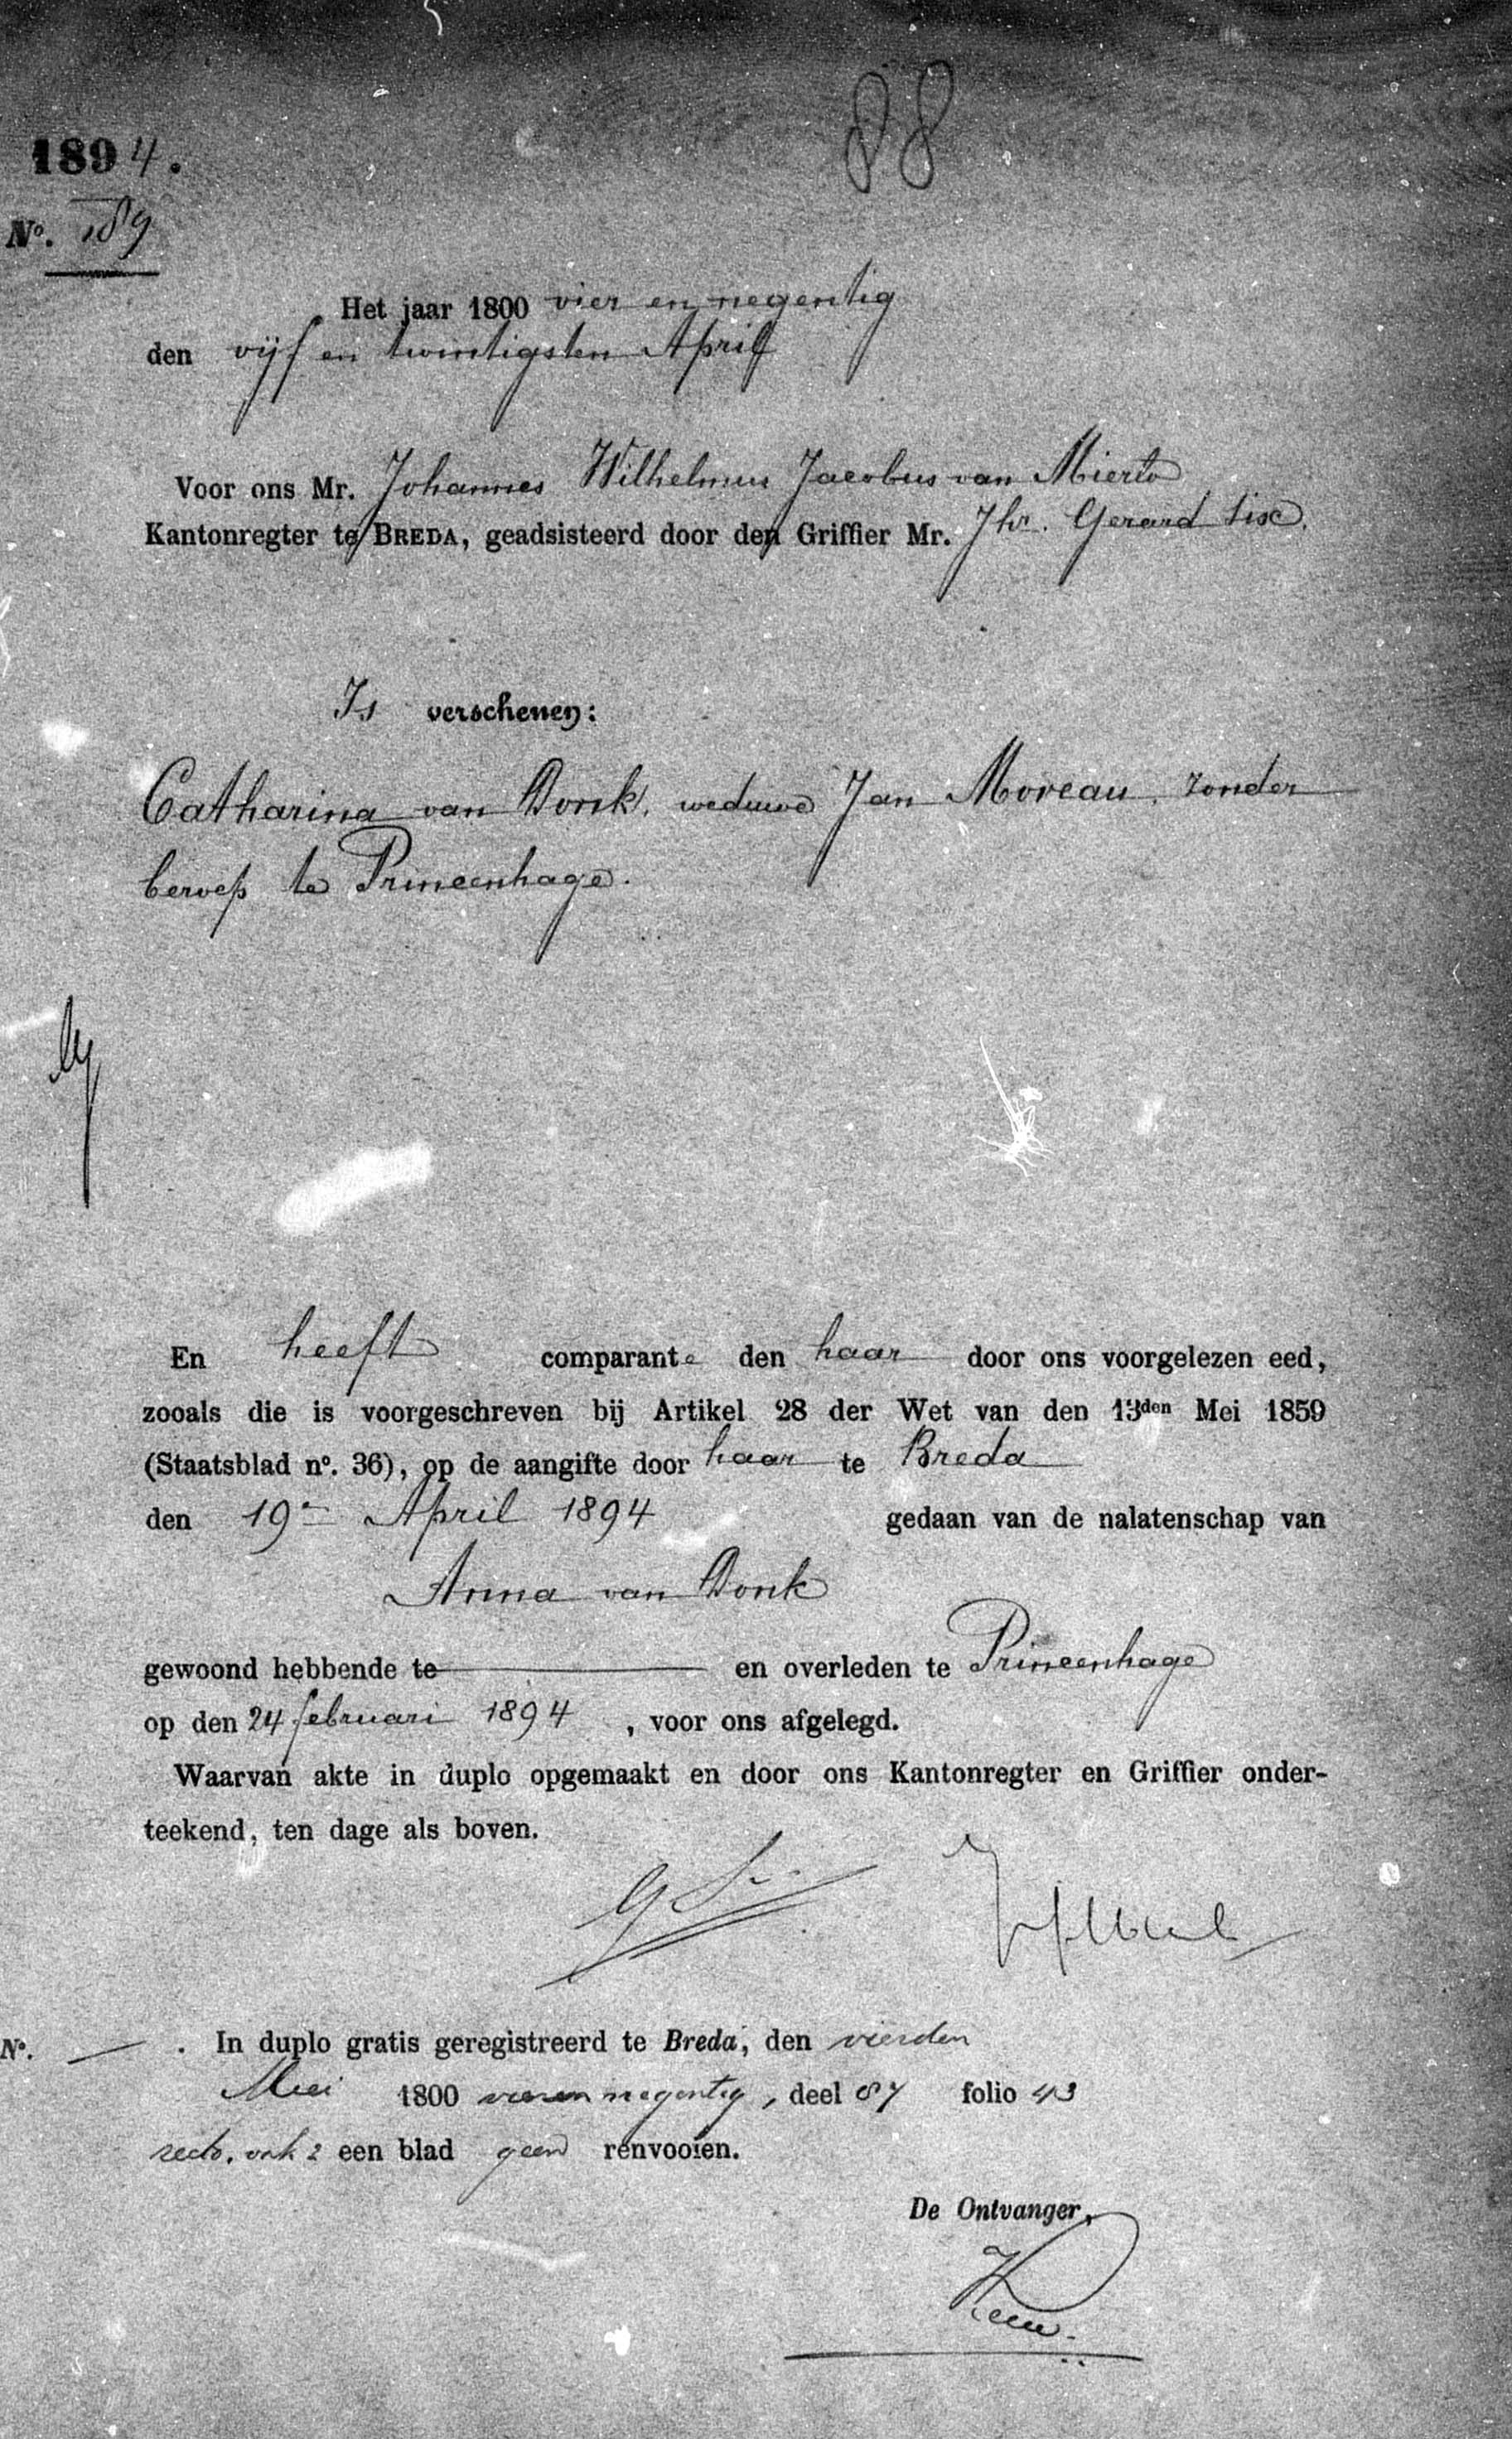 88
1894.
No. 189
Het jaar 1800 vier en negentig
den vijf en twintigsten April
Voor ons Mr. Johannes Wilhelmus Jacobus van Mierlo
Kantonregter te BREDA, geadsisteerd door den Griffier Mr. Jhr. Gerard Six.
Is verschenen:
Catharina van Donk, weduwe Jan Moreau, zonder
beroep te Princenhage.
En heeft comparante den haar door ons voorgelezen eed,
zooals die is voorgeschreven bij Artikel 28 der Wet van den 13den Mei 1859
(Staatsblad no. 36), op de aangifte door haar te Breda
den 19n April 1894 gedaan van de nalatenschap van
Anna van Donk
gewoond hebbende te en overleden te Princenhage
op den 24 februari 1894, voor ons afgelegd.
Waarvan akte in duplo opgemaakt en door ons Kantonregter en Griffier onder-
teekend, ten dage als boven.
No. — . In duplo gratis geregistreerd te Breda, den vierden
Mei 1800 vier en negentig, deel 87 folio 43
recto, vak 2 een blad geen renvooien.
De Ontvanger,